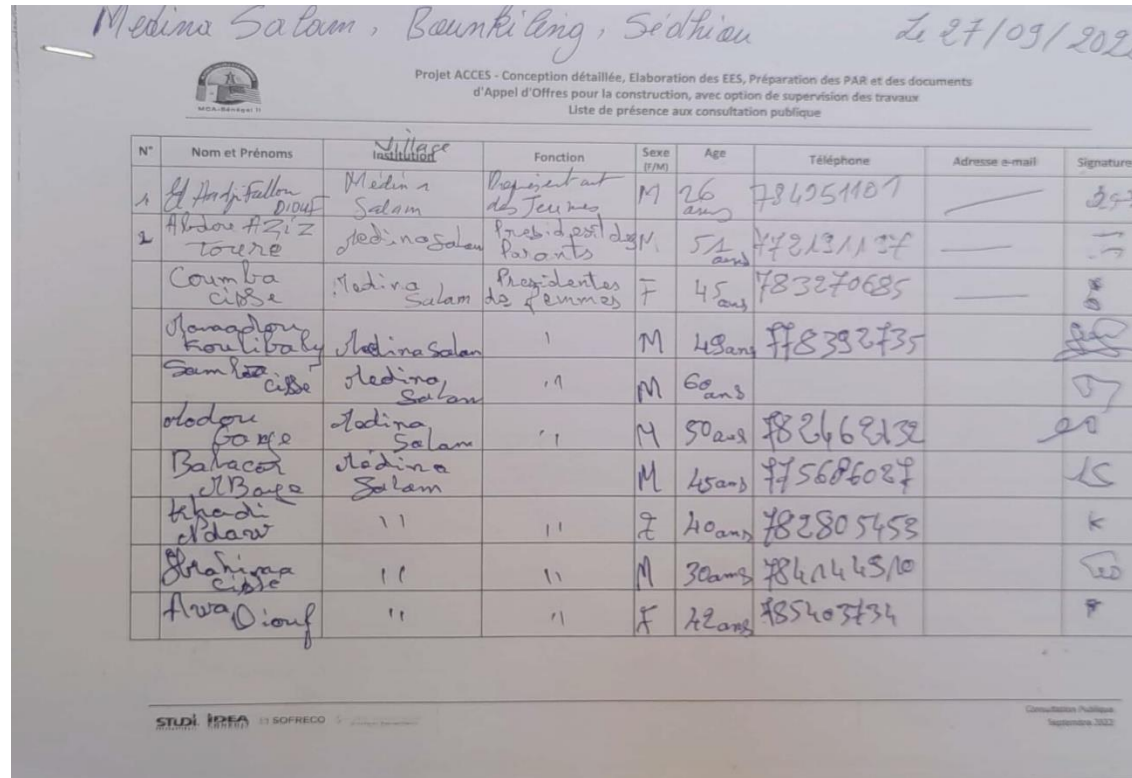 Medina Salam, Bounkiling, Sédhiou Le 27/09/202
MCA-Sénégal II
Projet ACCES - Conception détaillée, Elaboration des EES, Préparation des PAR et des documents
d'Appel d'Offres pour la construction, avec option de supervision des travaux
Liste de présence aux consultation publique
N° Nom et Prénoms Village Institution Fonction Sexe (F/M) Age Téléphone Adresse e-mail Signature
1 El Hadji Fallou DIOUF Médina Salam Représentant des Jeunes M 26 ans 784951101
2 Abdou AZIZ Toure Medina Salam President des Parants M 51 ans
Coumba cisse Medina Salam Presidentes de femmes F 45 ans 783270685
Mamadou Koulibaly Medina Salam M 49 ans 778392735
Samba cisse Medina Salam " M 60 ans
Modou Medina Salam " M 50 ans 782462132
Babacar MBaye Médina Salam M 45 ans 775686027
Khadi Ndaw " " F 40 ans 782805453
Ibrahima Cisse " " M 30 ans 784144510
Awa Diouf " " F 42 ans 785403734
STUDI IDEA SOFRECO
Consultation Publique
Septembre 2022